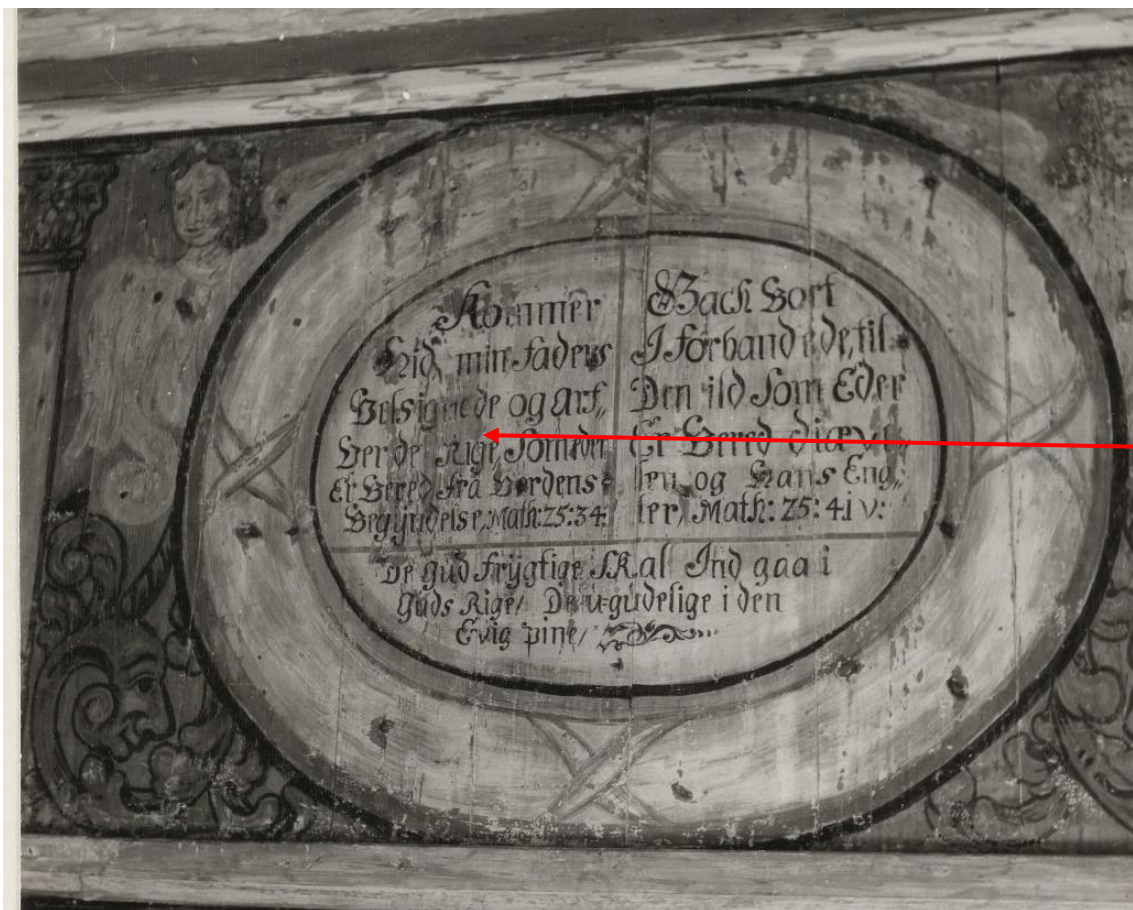 Kommer
Hid min faders
Velsignede og arf„
Ver de Rige Som eder
Er Bered fra Verdens
Begyndelse, Math: 25: 34:
Gach Bort
I forbandede, til
Den ild Som Eder
Er Bered diæve„
len og Hans Eng„
ler, Math: 25: 41 v:
De gud frygtige Skal Ind gaa i
Guds Rige / De u-gudelige i den
Evig pine /